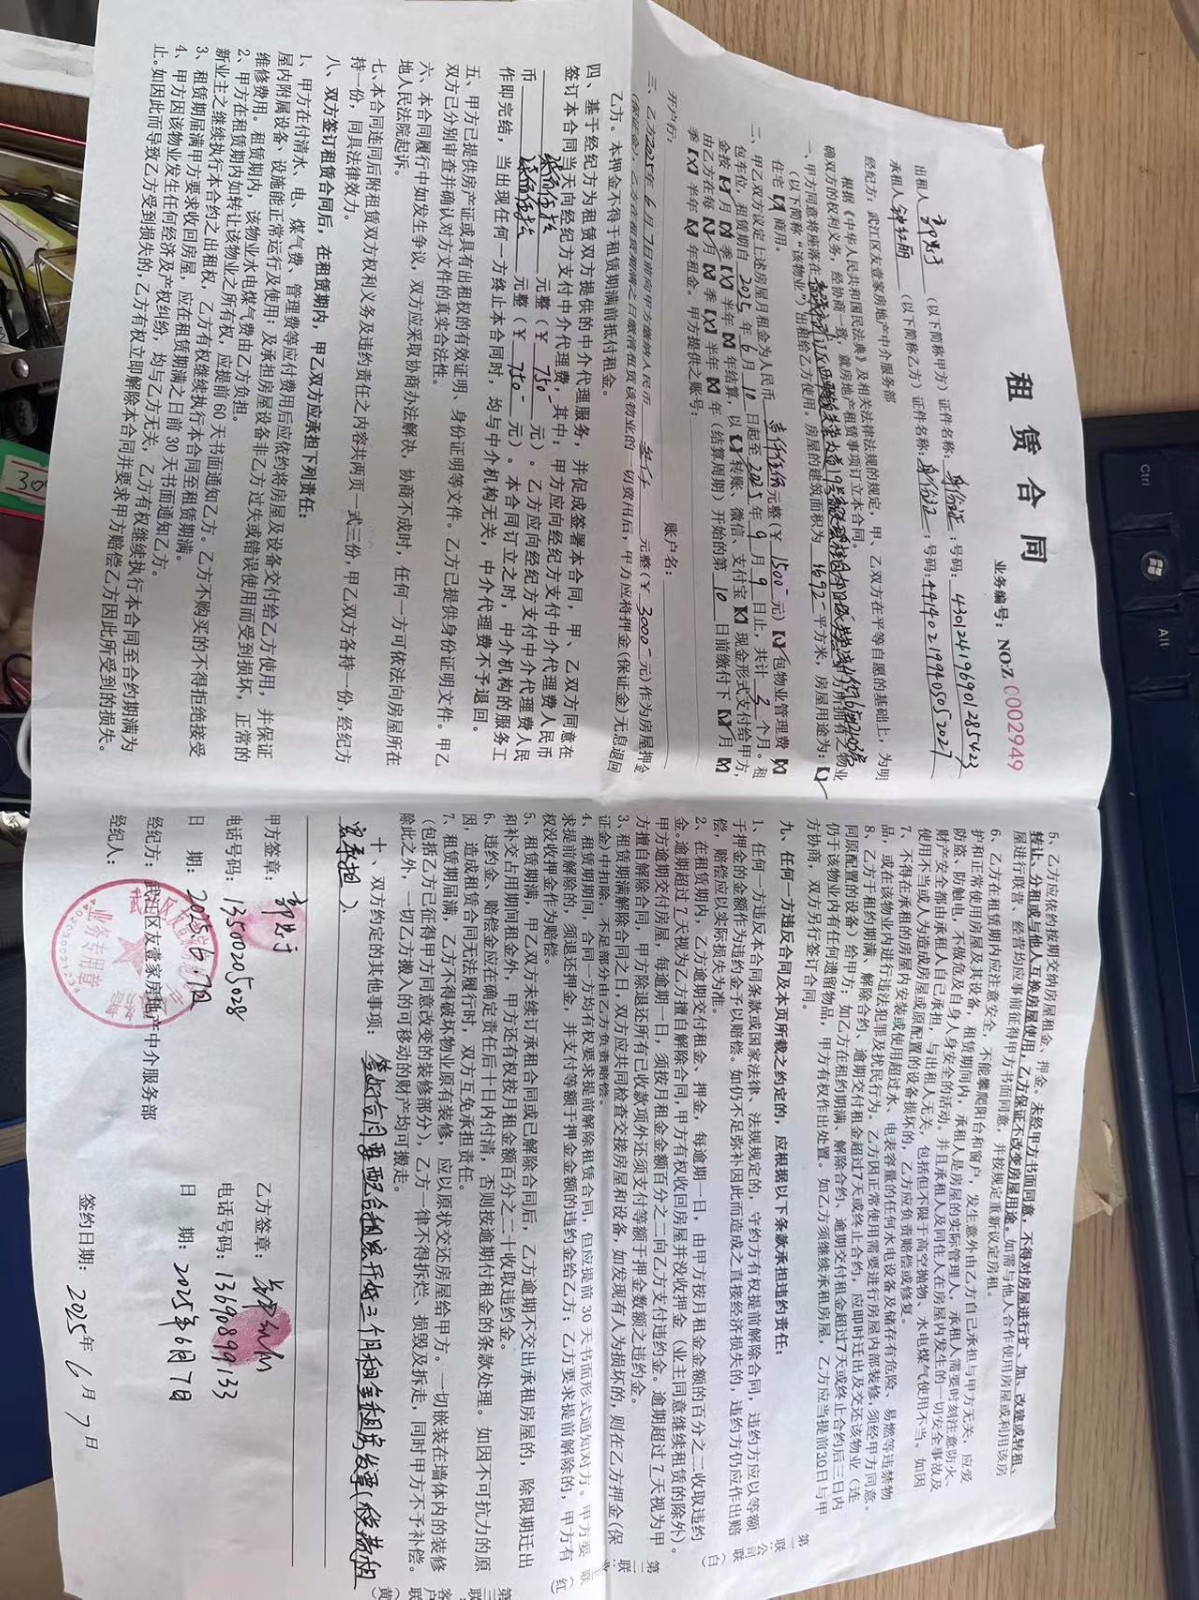 租赁合同
业务编号：NO:Z 0002949
出租人 （以下简称甲方）证件名称：身份证 号码：430124196901285423
承租人 （以下简称乙方）证件名称：身份证 号码：441402199405053027
经纪方：武江区友壹家房地产中介服务部
根据《中华人民共和国民法典》及相关法律法规的规定，甲、乙双方在平等自愿的基础上，为明
确双方的权利义务，经协商一致，就房地产租赁事项订立本合同。
一、甲方同意将座落在 方所拥有之物业
（以下简称“该物业”）出租给乙方使用。房屋的建筑面积为 平方米，房屋用途为：【√】
住宅【×】商用。
二、甲乙双方议定上述房屋月租金为人民币 元整（￥1500 元）【√】包物业管理费【×】
包车位，租赁期自 2025 年 6 月 10 日起至 2025 年 9 月 9 日止，共计 3 个月。租
金按【√】月【×】季【×】半年【×】年结算，以【√】转账、微信、支付宝【×】现金形式支付给甲方，
由乙方在每【√】月【×】季【×】半年【×】年（结算周期）开始的第 10 日前缴付下【√】月【×】
季【×】半年【×】年租金。甲方提供之账号：
开户行： 账户名：
三、乙方2025年 6 月 7 日前向甲方缴纳人民币 叁仟 元整（￥3000 元）作为房屋押金
（保证金），乙方在租赁期满之日缴清租赁该物业的一切费用后，甲方应将押金（保证金）无息退回
乙方。本押金不得于租赁期满前抵付租金。
四、基于经纪方为租赁双方提供的中介代理服务，并促成签署本合同，甲、乙双方同意在
签订本合同当天向经纪方支付中介代理费，其中：甲方应向经纪方支付中介代理费人民币
柒佰伍拾 元整（￥750 元）。乙方应向经纪方支付中介代理费人民
币 柒佰伍拾 元整（￥750 元）。本合同订立之时，中介机构的服务工
作即完结，当出现任何一方终止本合同时，均与中介机构无关，中介代理费不予退回。
五、甲方已提供房产证或具有出租权的有效证明、身份证明等文件。乙方已提供身份证明文件。甲乙
双方已分别审查并确认对方文件的真实合法性。
六、本合同履行中如发生争议，双方应采取协商办法解决，协商不成时，任何一方可依法向房屋所在
地人民法院起诉。
七、本合同连同后附租赁双方权利义务及违约责任之内容共两页一式三份，甲乙双方各持一份，经纪方
持一份，同具法律效力。
八、双方签订租赁合同后，在租赁期内，甲乙双方应承担下列责任：
1、甲方在付清水、电、煤气费、管理费等应付费用后应依约将房屋及设备交付给乙方使用，并保证
屋内附属设备、设施能正常运行及使用；及承担房屋设备非乙方过失或错误使用而受到损坏，正常的
维修费用。租赁期内，该物业水电煤气费由乙方负担。
2、甲方在租赁期内如转让该物业之所有权，应提前 60 天书面通知乙方。乙方不购买的不得拒绝接受
新业主之继续执行本合约之出租权，乙方有权继续执行本合同至租赁期满。
3、租赁期届满甲方要求收回房屋，应在租赁期满之日前 30 天书面通知乙方。
4、甲方因该物业发生任何经济及产权纠纷，均与乙方无关，乙方有权继续执行本合同至合约期满为
止。如因此而导致乙方受到损失的，乙方有权立即解除本合同并要求甲方赔偿乙方因此所受到的损失。
5、乙方应依约按期交纳房屋租金、押金。未经甲方书面同意，不得对房屋进行扩、加、改建或转租、
转让、分租或与他人互换房屋使用，乙方保证不改变房屋用途。如需与他人合作使用房屋或利用该房
屋进行联营、经营均应事前征得甲方书面同意，并按规定重新议定房租。
6、乙方在租赁期内应注意安全，不能攀爬阳台和窗户，发生意外由乙方自己承担与甲方无关，应爱
护和正常使用房屋及其设备，租赁期间内，承租人是房屋的实际管理人，承租人需要时刻注意防火、
防盗、防触电，不做危及自身人身安全的活动。并且承租人及同住人在房屋内发生的一切安全事故及
财产安全都由承租人自己承担，与出租人无关，包括但不限于高空抛物、水电煤气使用不当。如因
使用不当或人为造成房屋或原配置的设备损坏的，乙方应负责赔偿或修复。
7、不得在承租的房屋内安装或使用超过水、电表容量的任何水电设备及储存有危险、易燃等违禁物
品，或在该物业内进行违法犯罪及扰民行为。乙方因正常使用需要进行房屋内部装修，须经甲方同意。
8、乙方于租约期满、解除合约、逾期交付租金超过7天或终止合约，应即时迁出及交还该物业（连
同原配置的设备）给甲方；如乙方在租约期满、解除合约、逾期交付租金超过7天或终止合约后三日内
仍于该物业内有任何遗留物品，甲方有权作出处置。如乙方须继续承租房屋，乙方应当提前30日与甲
方协商，双方另行签订合同。
九、任何一方违反合同及本页所载之约定的，应根据以下条款承担违约责任：
1、任何一方违反本合同条款或国家法律、法规规定的，守约方有权提前解除合同，违约方应以等额
于押金的金额作为违约金予以赔偿。如仍不足弥补因此而造成之直接经济损失的，违约方仍应作出赔
偿，赔偿应以实际损失为准。
2、在租赁期内，乙方逾期交付租金、押金，每逾期一日，由甲方按月租金金额的百分之二收取违约
金。逾期超过 7 天视为乙方擅自解除合同，甲方有权收回房屋并没收押金（业主同意继续租赁的除外）。
甲方逾期交付房屋，每逾期一日，须按月租金金额百分之二向乙方支付违约金。逾期超过 7 天视为甲
方擅自解除合同，甲方除退还所有已收款项外还须支付等额于押金数额之违约金。
3、租赁期满解除合同之日，双方应共同检查交接房屋和设备，如发现有人为损坏的，则在乙方押金（保
证金）中扣除，不足部分由乙方负责赔偿。
4、租赁期间，合同一方均有权要求提前解除租赁合同，但应提前 30 天书面形式通知对方。甲方要
求提前解除的，须退还押金，并支付等额于押金金额的违约金给乙方；乙方要求提前解除的，甲方有
权没收押金作为赔偿。
5、租赁期满，甲乙双方未续订承租合同或已解除合同后，乙方逾期不交出承租房屋的，除限期迁出
和补交占用期间租金外，甲方还有权按月租金额百分之二十收取违约金。
6、违约金、赔偿金应在确定责任后十日内付清，否则按逾期付租金的条款处理。如因不可抗力的原
因，造成租赁合同无法履行时，双方互免承担责任。
7、租赁期届满，乙方不得破坏物业原有装修，应以原状交还房屋给甲方。一切嵌装在墙体内的装修
（包括乙方已征得甲方同意改变的装修部分），乙方一律不得拆烂、损毁及拆走，同时甲方不予补偿。
除此之外，一切乙方搬入的可移动的财产均可搬走。
十、双方约定的其他事项：签好合同要配合租客开好三个月租金租房发票（税费租
客承担）．
甲方签章： 乙方签章：
电话号码：13500205028 电话号码：13690899133
日 期：2025.6.7日 日 期：2025年6月7日
经纪方：武江区友壹家房地产中介服务部
经纪人： 签约日期：2025年 6 月 7 日
业务专用章
第一联 公司联（白）
第二联 业主联（红）
第三联 客户联（黄）
Ctrl
Alt
30